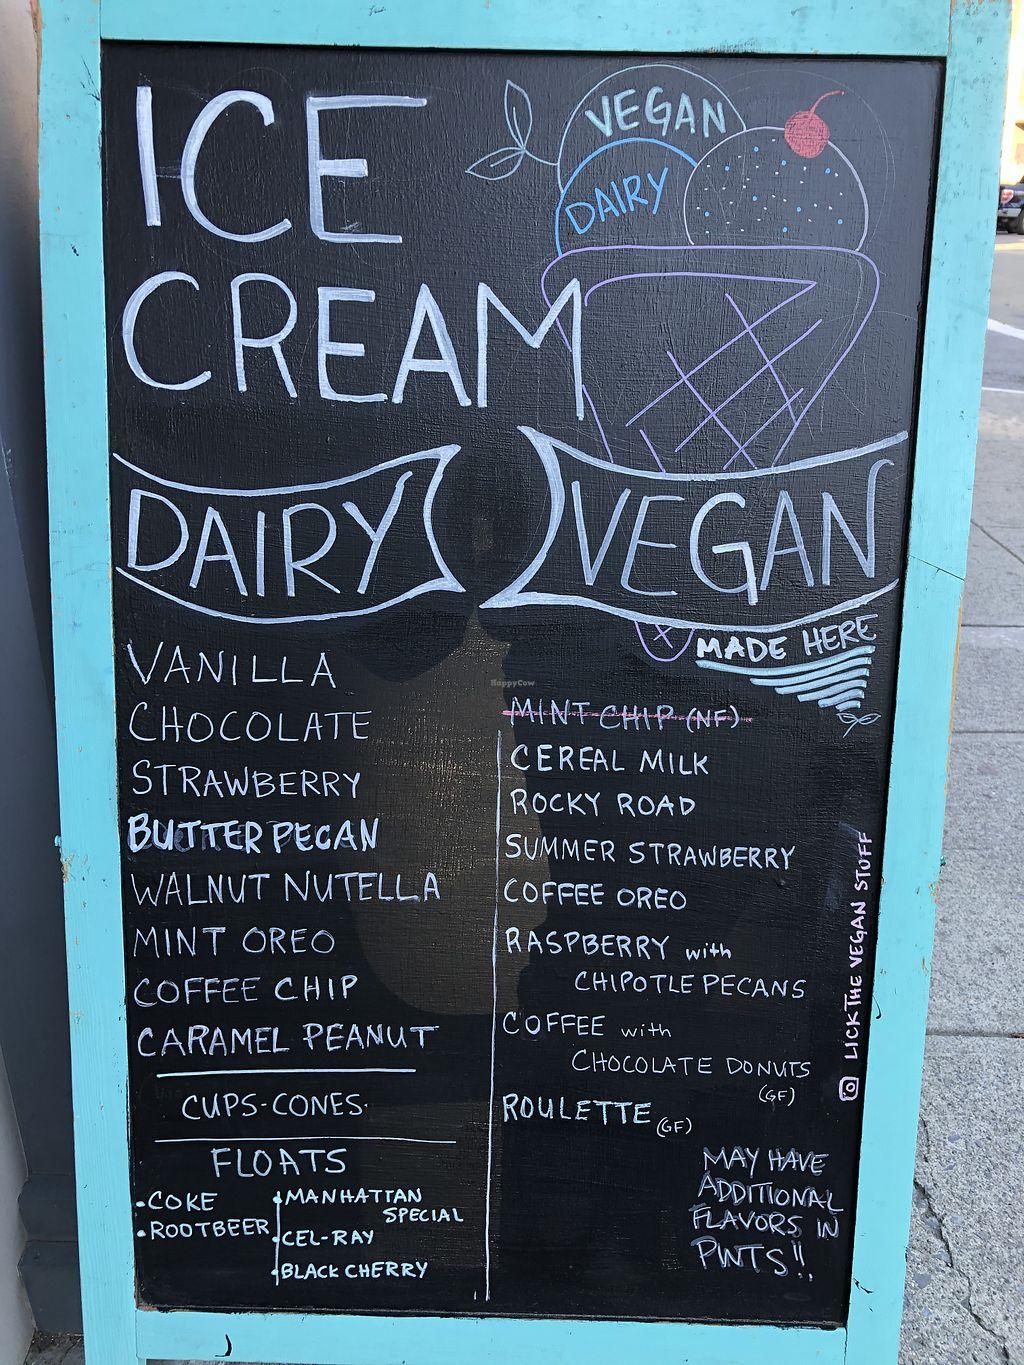 ICE
CREAM
VEGAN
DAIRY
DAIRY
VANILLA
CHOCOLATE
STRAWBERRY
BUTTER PECAN
WALNUT NUTELLA
MINT OREO
COFFEE CHIP
CARAMEL PEANUT
CUPS-CONES
FLOATS
•COKE
•ROOTBEER
•MANHATTAN
SPECIAL
•CEL-RAY
•BLACK CHERRY
VEGAN
MADE HERE
HappyCow
MINT CHIP (NF)
CEREAL MILK
ROCKY ROAD
SUMMER STRAWBERRY
COFFEE OREO
RASPBERRY with
CHIPOTLE PECANS
COFFEE with
CHOCOLATE DONUTS
(GF)
ROULETTE (GF)
MAY HAVE
ADDITIONAL
FLAVORS IN
PINTS!!
LICKTHE VEGAN STUFF